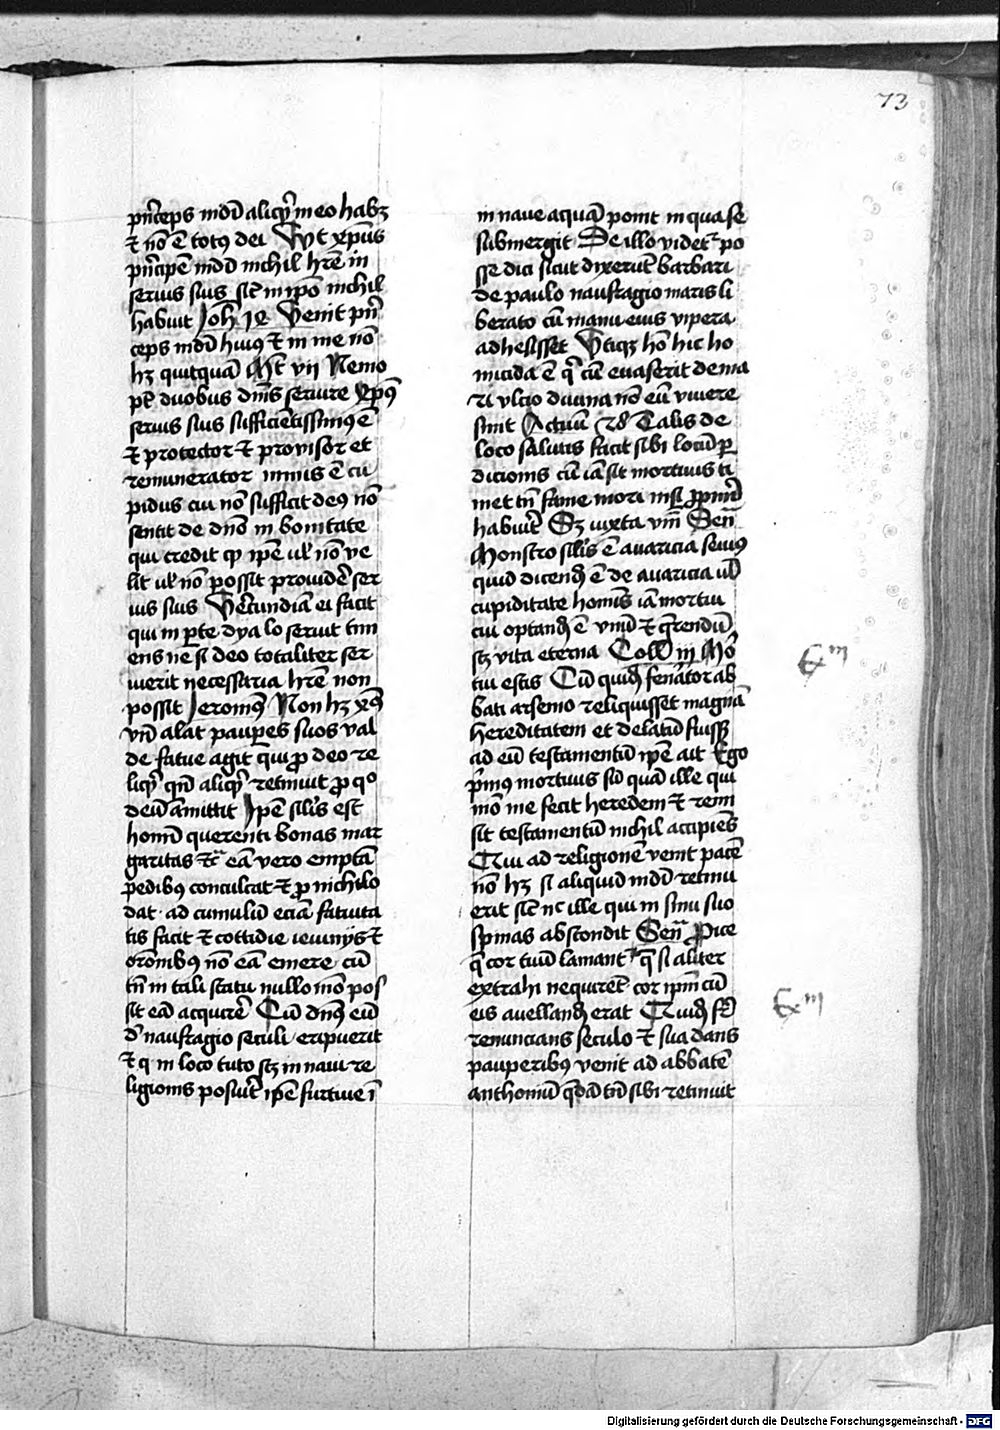 73
pn̄ceps mdī aliqͥ in eo habꝫ
⁊ nō ē totꝰ dei Vt xp̄us
pn̄cipē mdī nichil hr̄e in
seruis suis sic̄ in ip̄o nichil
habuit Joh̄ 14 Venit pn̄
ceps mdī huiꝰ ⁊ in me nō
hꝫ quitquā Mt̄ vii Nemo
pt̄ duobus dn̄is seruire Xp̄s
seruis suis sufficiētissimꝰ ē
⁊ protector ⁊ prouisor et
remunerator nimis ē cu
pidus cui nō sufficit deꝰ nō
sentit de dn̄o in bonitate
qui credit ꝙ ip̄e ul̄ nō ve
lit ul̄ nō possit prouidēr ser
uis suis Verecundiā ei facit
qui in ꝑte dyalo seruit tim
ens ne si deo totaliter ser
uierit necessaria hr̄e non
possit Jeronimꝰ Non hꝫ xp̄s
vn̄ alat pauꝑes suos val
de fatue agit qui ꝓ deo re
liqͥt qn̄ aliqͥ retinuit ꝓ qͦ
deū amittit Ip̄e sil̄is est
homī querenti bonas mar
garitas ⁊c̄ eā vero emptā
pedibꝰ conculcat ⁊ ꝓ nichilo
dat ad cumulū eciā fatuita
tis facit ⁊ cottidie ieiunijs ⁊
or̄onibꝰ nō eā emere cū
tn̄ in tali statu nullo mō pos
sit eā acquirēr Cū dn̄us eū
d̄ naufragio seculi eripuerit
⁊ q in loco tuto scꝫ in naui re
ligionis posuit ip̄e furtiue ī
in naue aquā ponit in qua se
submergit De illo videt̄ po
sse dici sicut dixerūt barbari
de paulo naufragio maris li
berato cū manu eius vipera
adhesisset Vtiqꝫ hō hic ho
micida ē qͥ cū euaserit de ma
ri vlcio diuina nō eū viuere
sinit Actuū 28 Talis de
loco salutis facit sibi locū ꝑ
dicionis cū iā sit mortuus ti
met tn̄ fame mori nisi
habuīt Sꝫ iuxta vm̄ Sen̄
Monstro sil̄is ē auaricia senilꝰ
quid dicendū ē de auaricia ul̄
cupiditate hominis iā mortui
cui optandū ē vnū ⁊ q̄rendū
scꝫ vita eterna Coll̄ iij Mor
tui estis Cū quidā senator ab
bati arsenio reliquisset magnā
hereditatem et delatū fuiss̄
ad eū testamentū ip̄e ait Ego
pͥmus mortuus sū quā ille qui
mō me fecit heredem ⁊ remi
sit testamentū nichil accipiēs
Qui ad religionē venit pacē
nō hꝫ si aliquid mdī retinu
erit sic̄ nc̄ ille qui in sinu suo
spinas abscondit Sen̄ Proice
q̄ cor tuū laniant q̄ si aliter
extrahi nequirēt cor ip̄m cū
eis auellendū erat Quidā fr̄
renuncians seculo ⁊ sua dans
pauperibꝰ venit ad abbatē
anthoniū q̄dā tn̄ sibi retinuit
Exm
Exm
Digitalisierung gefördert durch die Deutsche Forschungsgemeinschaft - DFG